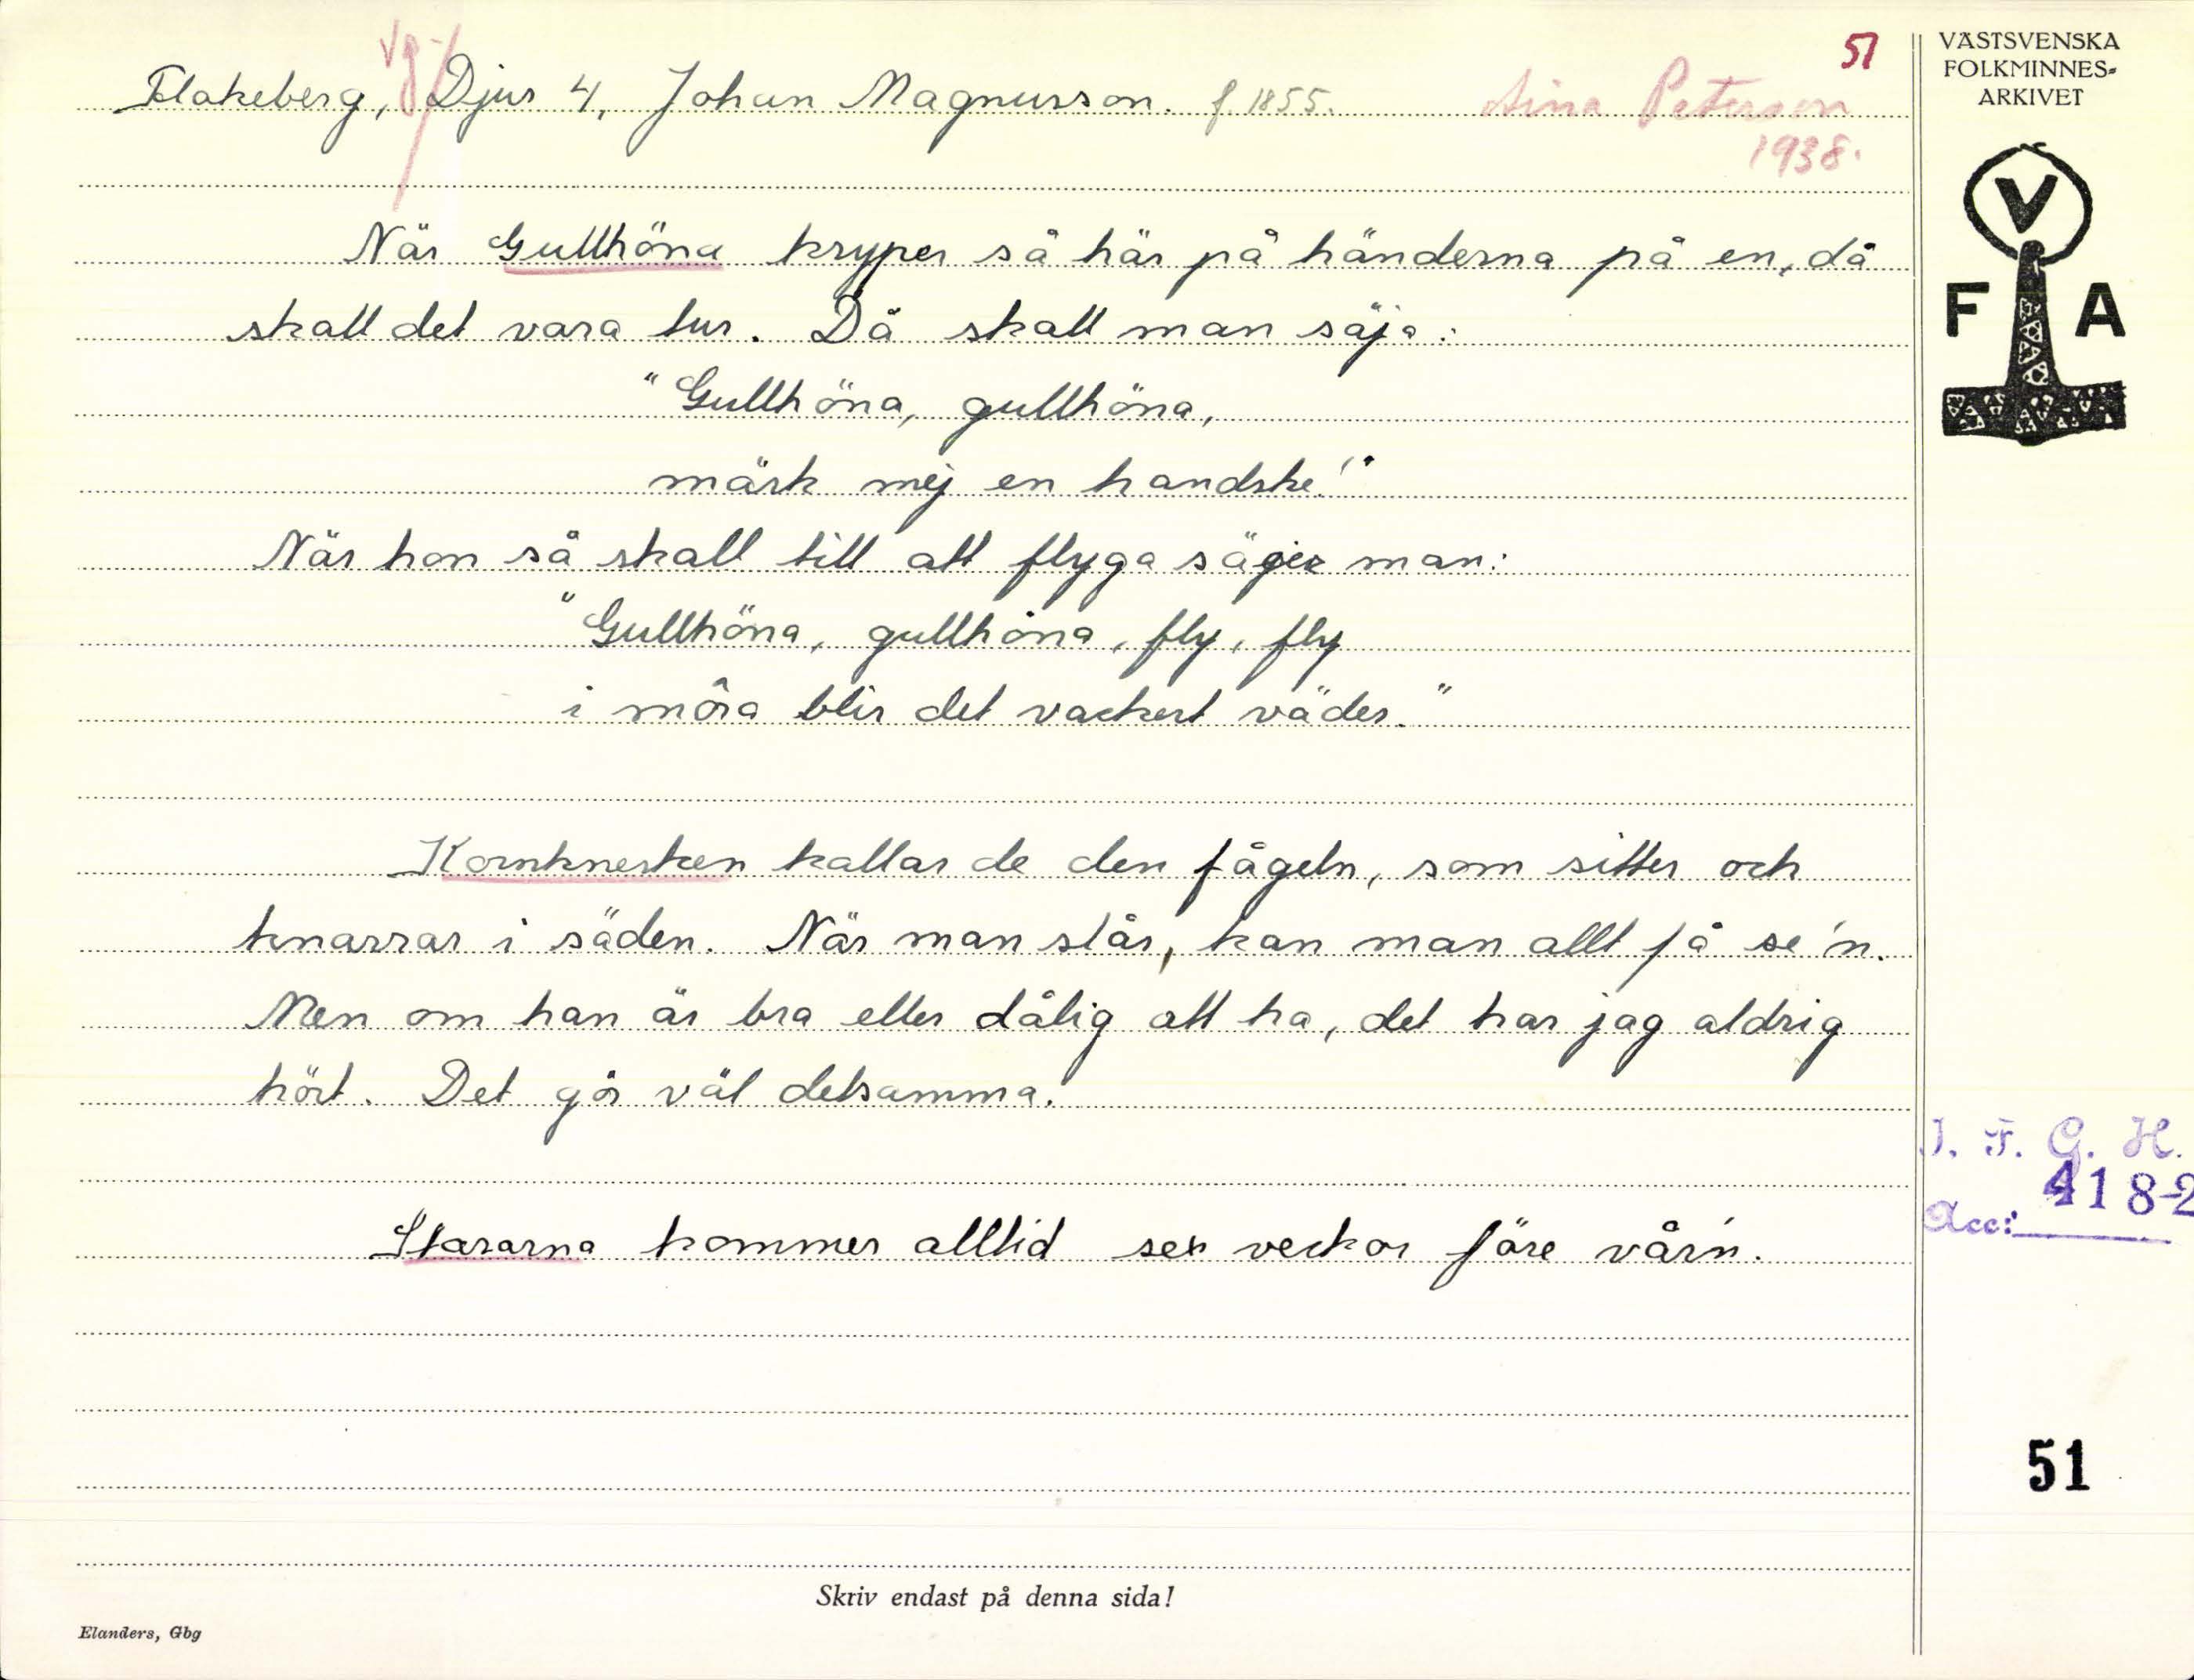 51
Vg.
Flakeberg, Djur 4, Johan Magnusson. f. 1855. Aina Peterson
1938.
När Gullhöna kryper så här på händerna på en, då
skall det vara tur. Då skall man säja:
"Gullhöna, gullhöna,
märk mej en handske!"
När hon så skall till att flyga säger man:
"Gullhöna, gullhöna, fly, fly
i môra blir det vackert väder."
Kornknerken kallar de den fågeln, som sitter och
knarrar i säden. När man slår, kan man allt få se'n.
Men om han är bra eller dålig att ha, det har jag aldrig
hört. Det gör väl detsamma.
Stararna kommer alltid sex veckor före vår'n.
Skriv endast på denna sida!
Elanders, Gbg
VÄSTSVENSKA
FOLKMINNES-
ARKIVET
V
F A
I. F. G. H.
4182
Acc:
51